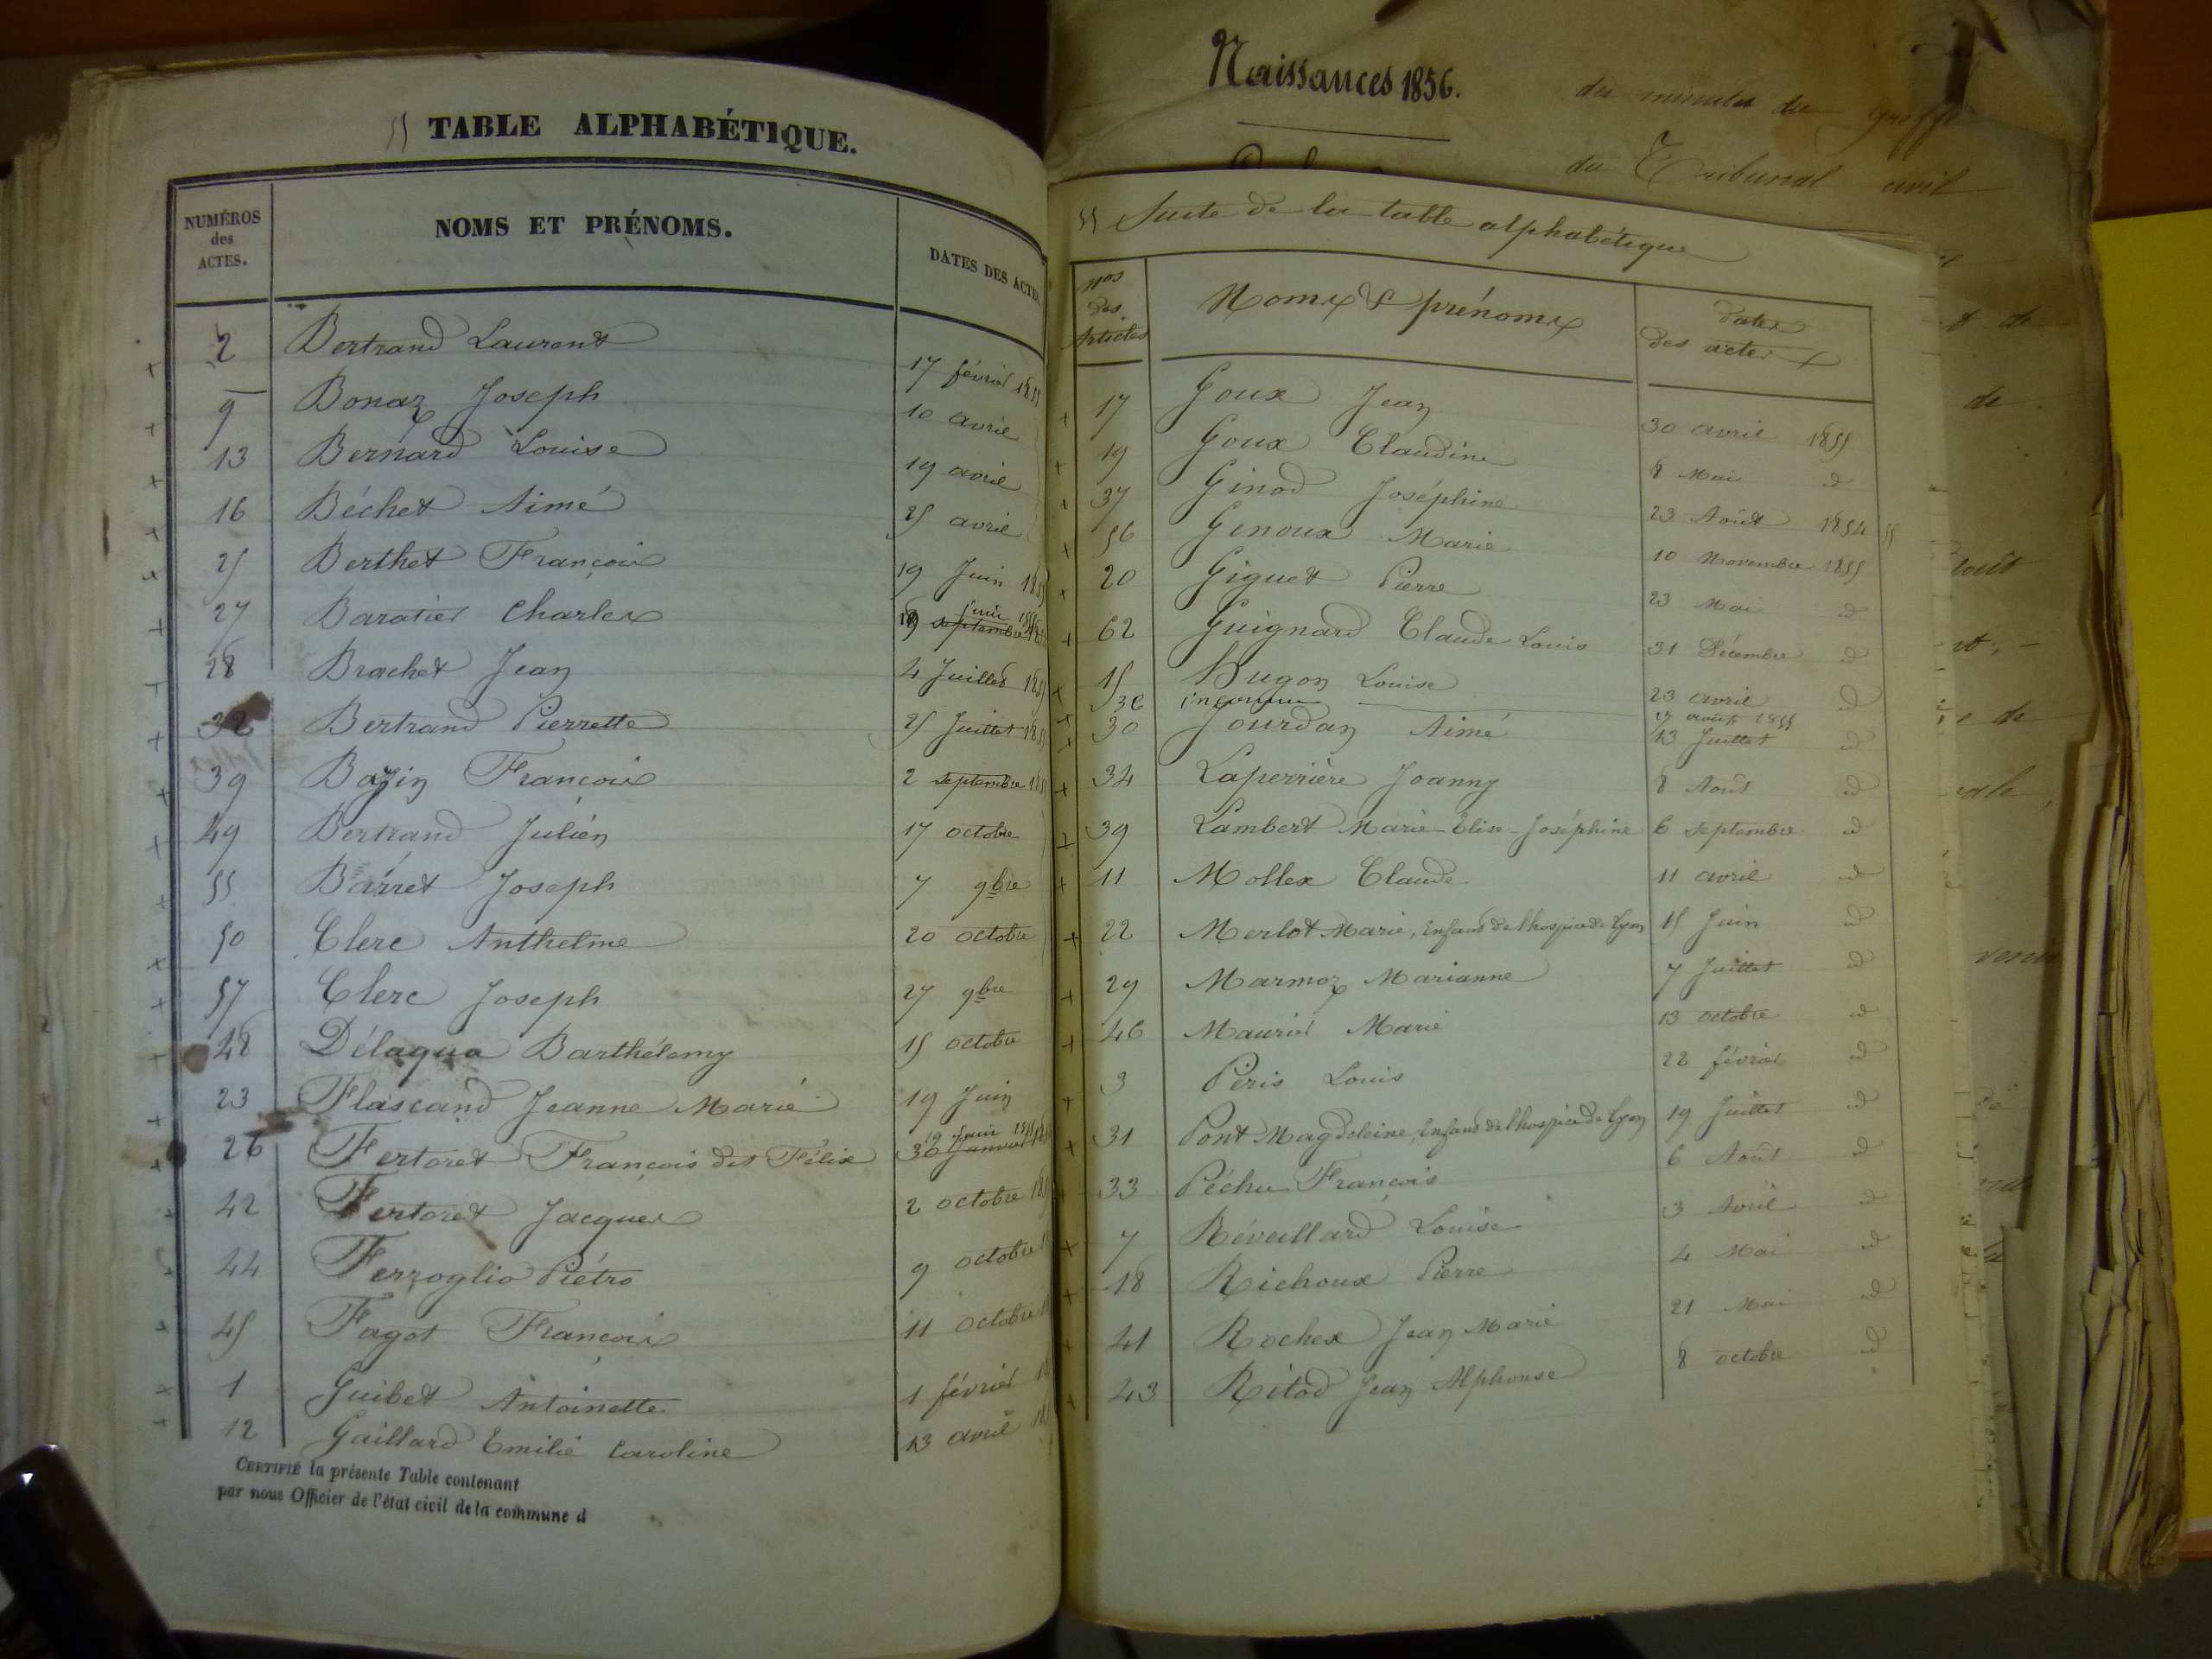 55 TABLE ALPHABÉTIQUE.
NUMÉROS des ACTES.
NOMS ET PRÉNOMS.
DATES DES ACTES
2 Bertrand Laurent 17 février 1855
9 Bonaz Joseph 10 avril
13 Bernard Louise 19 avril
16 Béchet Aimé 25 avril
25 Berthet François 19 Juin 1855
27 Baratier Charles 19 septembre juin 1855
28 Brachet Jean 4 Juillet 1855
32 Bertrand Pierrette 25 Juillet 1855
39 Bazin François 2 septembre 1855
49 Bertrand Julien 17 octobre
55 Barret Joseph 7 9bre
50 Clerc Anthelme 20 octobre
57 Clerc Joseph 27 9bre
48 Délaqua Barthélemy 15 octobre
23 Flascand Jeanne Marie 19 Juin
26 Fertoret François dit Félix 30 Janvier 19 juin 1855
42 Fertoret Jacques 2 octobre 185
44 Ferzoglio Piétro 9 octobre 1
45 Fagot François 11 octobre 18
1 Guibet Antoinette 1 février 18
12 Gaillard Emilie Caroline 13 avril 18
CERTIFIÉ la présente Table contenant
par nous Officier de l'état civil de la commune d
Naissances 1856.
des minutes du greffe
du Tribunal civil
55 Suite de la table alphabétique
Nos des Articles
Noms & prénoms
dates des actes
17 Goux Jean 30 avril 1855
19 Goux Claudine 8 Mai d
37 Ginod Joséphine 23 Août 1854 55
56 Genoux Marie 10 Novembre 1855
20 Giguet Pierre 23 Mai d
62 Guignard Claude Louis 31 Décembre d
15 Hugon Louise 23 avril d
36 inconnu 17 août 1855
30 Jourdan Aimé 13 Juillet d
34 Laperrière Joanny 8 Août d
39 Lambert Marie-Elise-Joséphine 6 septembre d
11 Mollex Claude 11 avril d
22 Merlot Marie, Enfant de l'hospice de Lyon 15 Juin d
29 Marmoz Marianne 7 Juillet d
46 Maurier Marie 13 octobre d
3 Peris Louis 22 février d
31 Pont Magdeleine, Enfant de l'hospice de Lyon 19 Juillet d
33 Péchu François 6 Août d
7 Réveillard Louise 3 Avril d
18 Richoux Pierre 4 Mai d
41 Rochex Jean Marie 21 Mai d
43 Ritod Jean Alphonse 8 octobre d